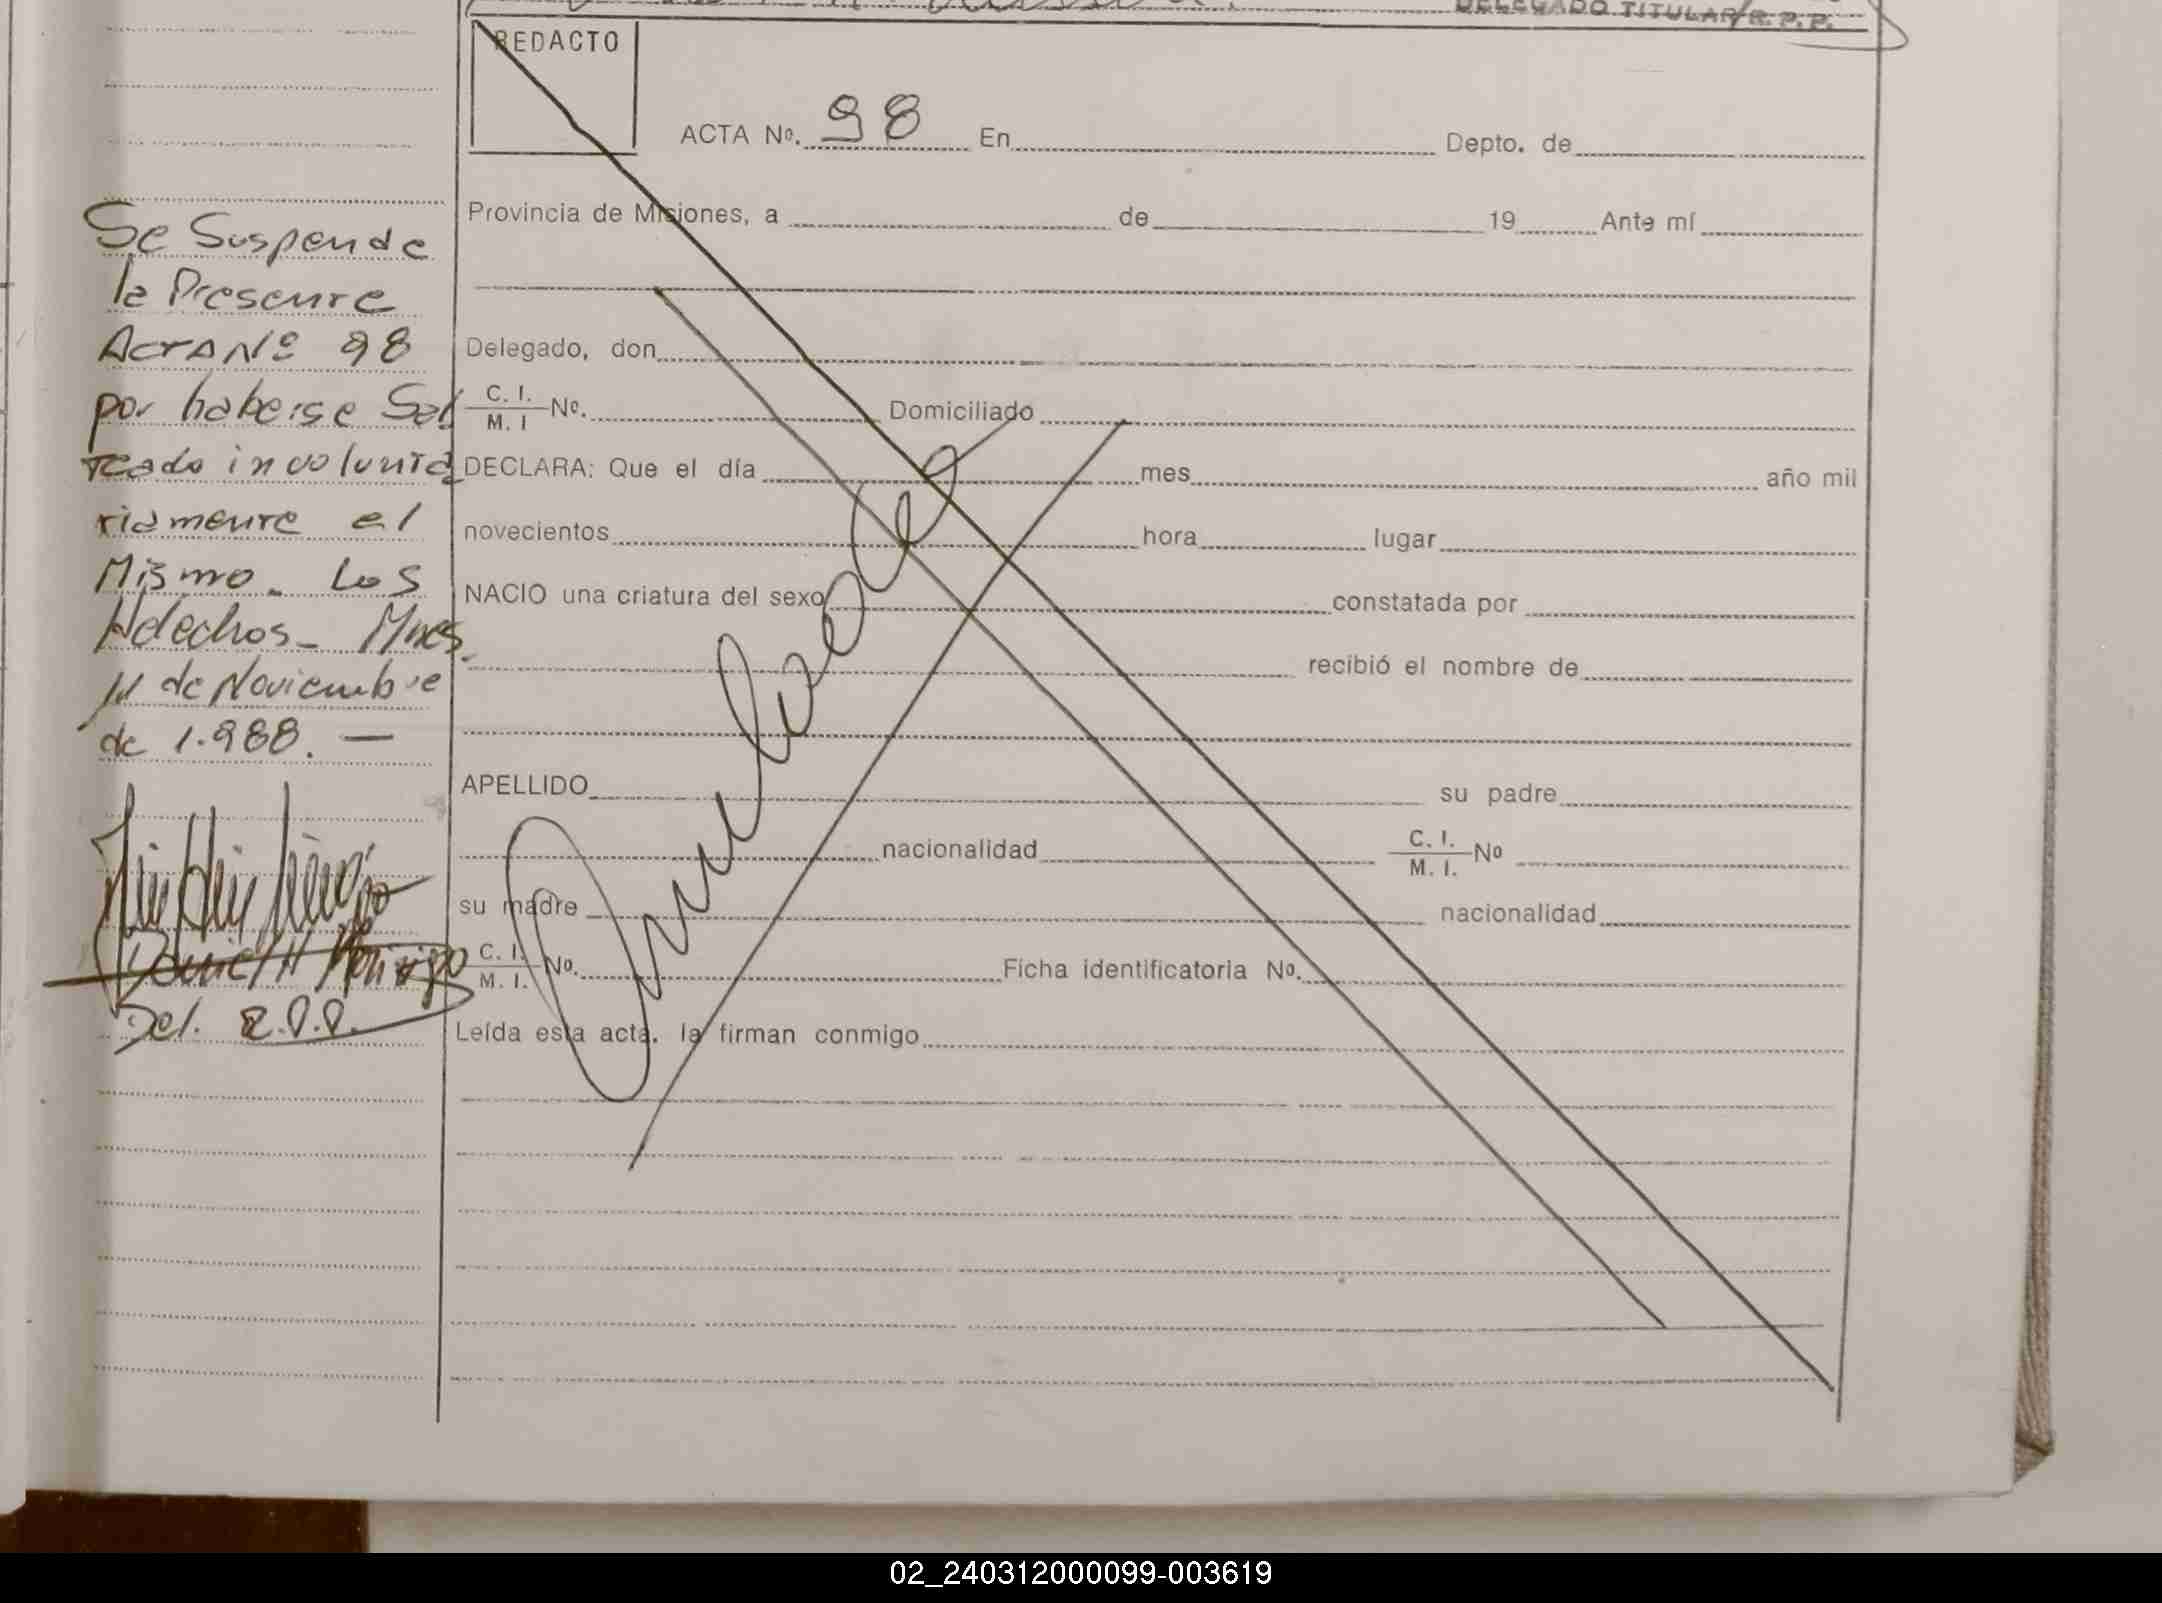 DELEGADO TITULAR/R.P.P.
REDACTO
ACTA Nº. 98 En Depto. de
Provincia de Misiones, a de 19 Ante mí
Delegado, don
C. I.
M. I Nº. Domiciliado
DECLARA: Que el día mes año mil
novecientos hora lugar
NACIO una criatura del sexo constatada por
recibió el nombre de
APELLIDO su padre
nacionalidad C. I.
M. I. Nº
su madre nacionalidad
C. I.
M. I. Nº. Ficha identificatoria Nº.
Leída esta acta. la firman conmigo
Anulado
Se Suspende
la Presente
Acta Nº 98
por haberse Sal
teado involunta
riamente el
Mismo. Los
Helechos - Mnes.
11 de Noviembre
de 1.988. —
Del. R.P.P.
02_240312000099-003619